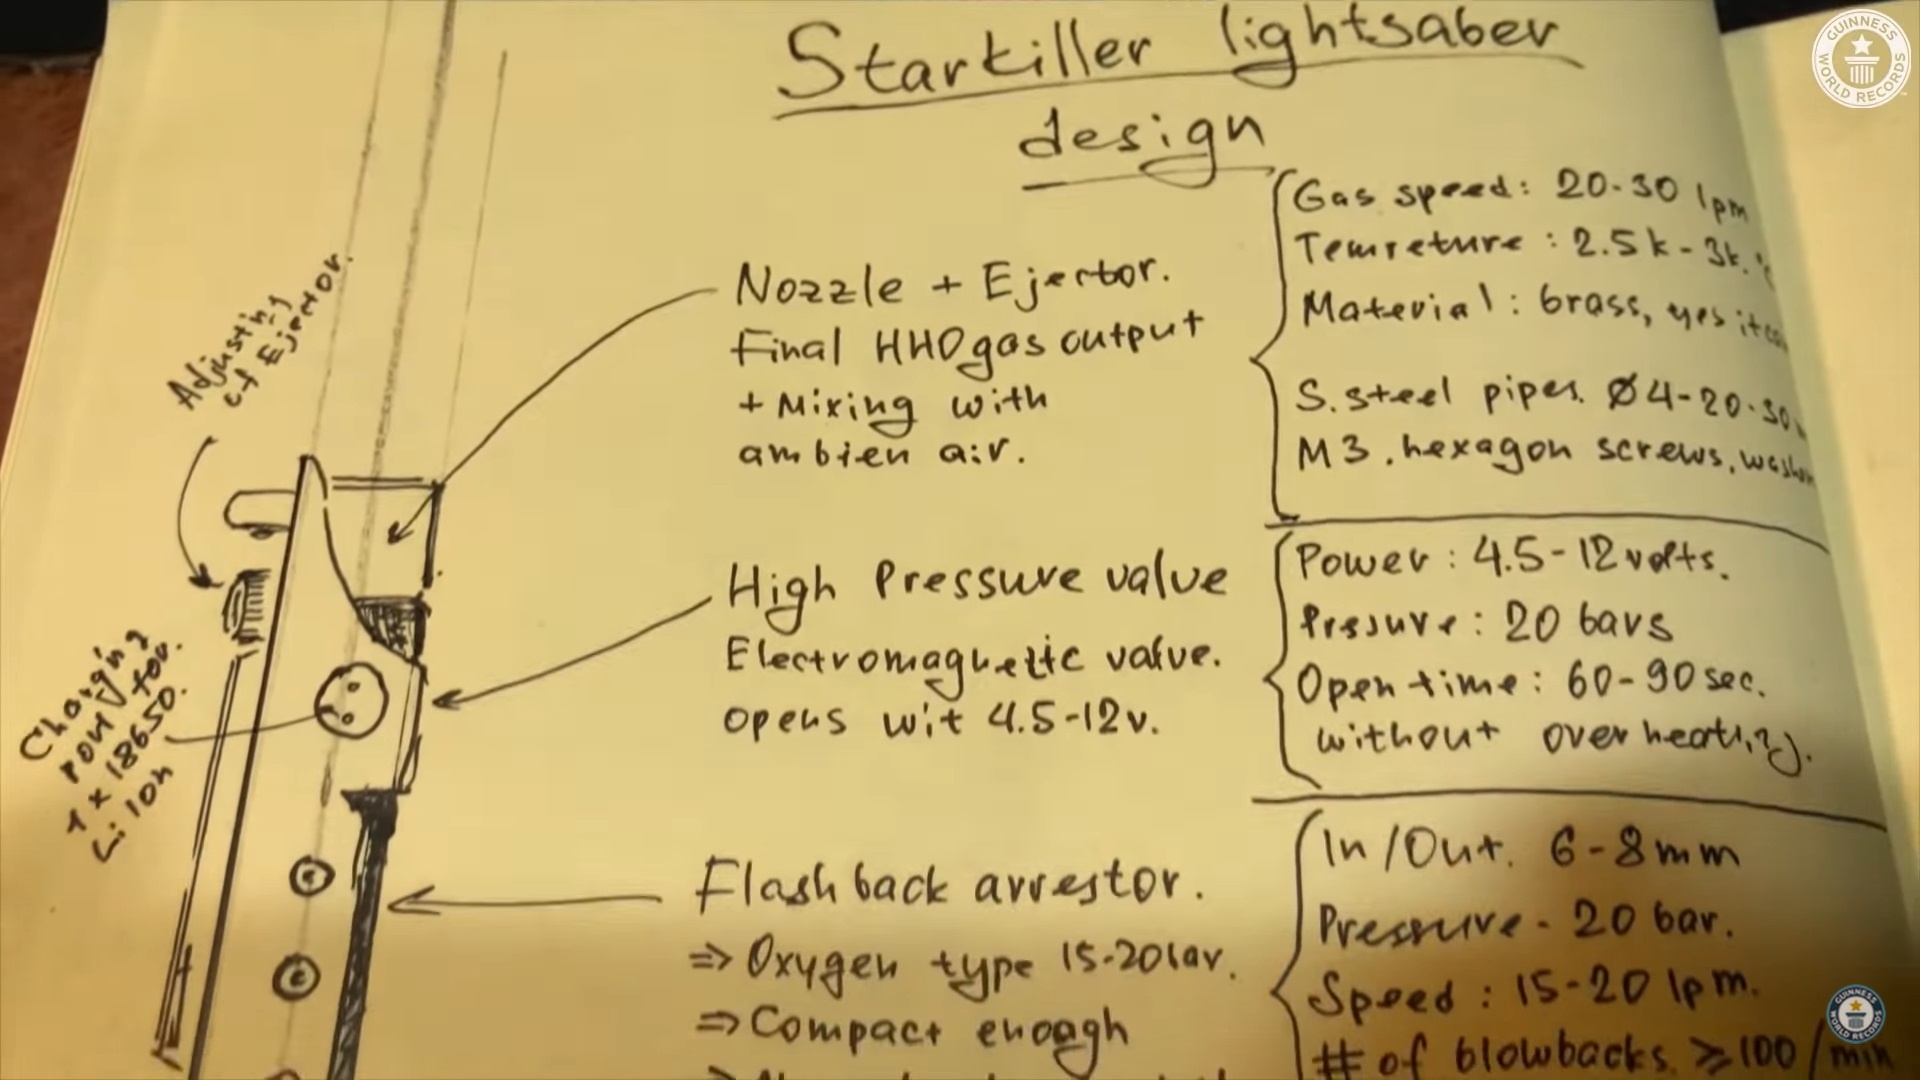 Starkiller lightsaber
design
Adjusting
of Ejector.
Nozzle + Ejector.
Final HHO gas output
+ Mixing with
ambien air.
Gas speed: 20-30 lpm
Temreture: 2.5k - 3k.
Material: brass, yes it
S.steel pipes. Ø4-20-30
M3. hexagon screws,
Charging
port for.
1 x 18650.
Li Ion
High Pressure valve
Electromagnetic valve.
opens wit 4.5-12v.
Power: 4.5-12 volts.
Pressure: 20 bars
Open time: 60-90 sec.
without overheating.
Flash back arrestor.
⇒ Oxygen type 15-20 bar.
⇒ Compact enough
In/Out. 6-8mm
Pressure - 20 bar.
Speed: 15-20 lpm.
# of blowbacks. ≥100/min
GUINNESS
WORLD RECORDS
GUINNESS
WORLD RECORDS